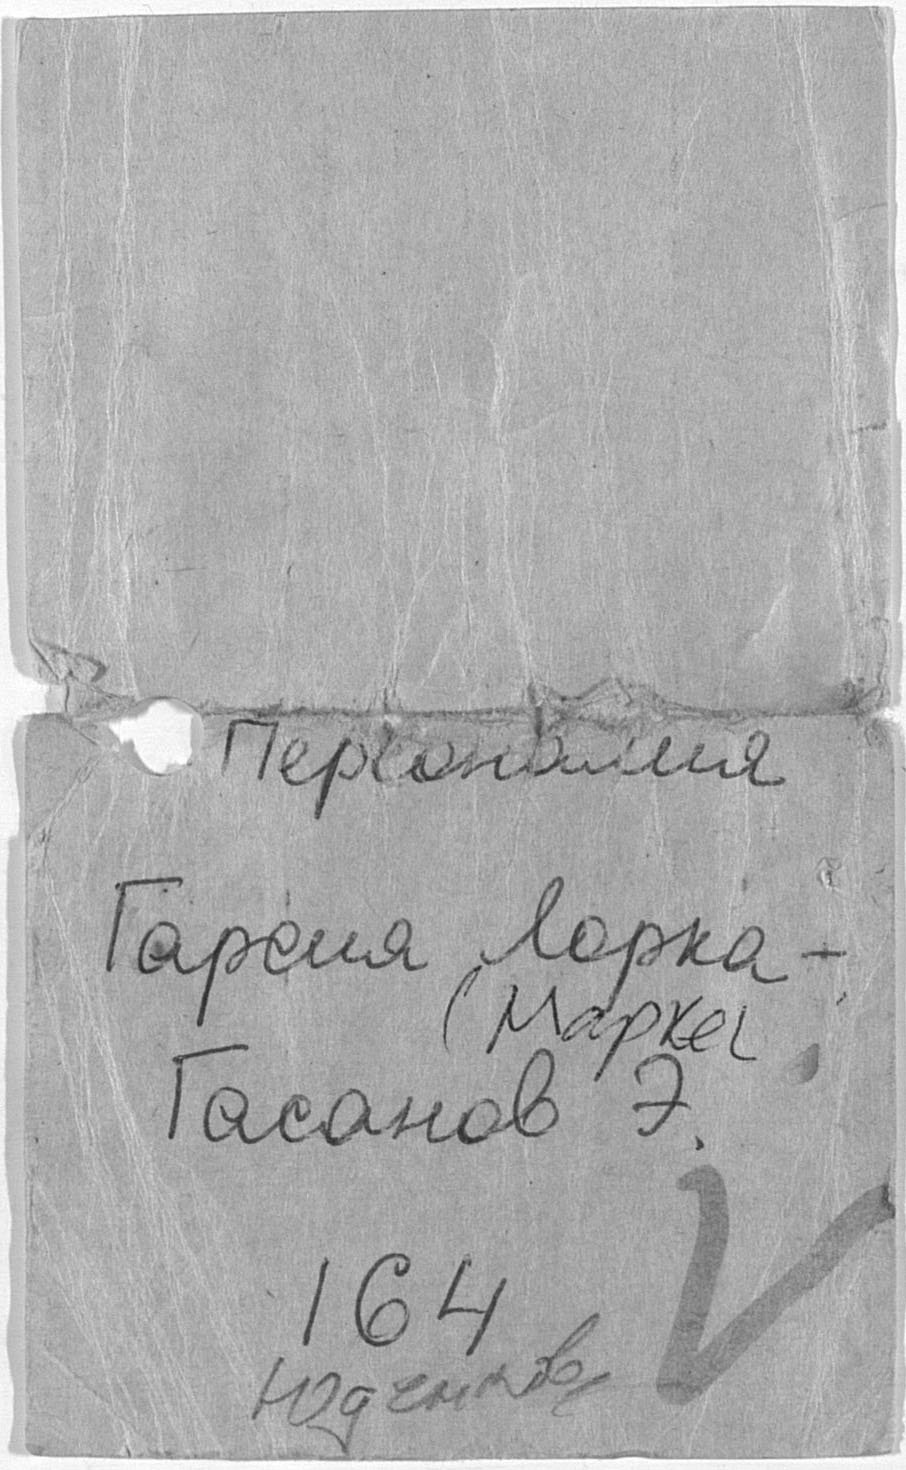 Персоналия
Гарсия Лорка -
(Маркес
Гасанов Э.
164
Юденкова